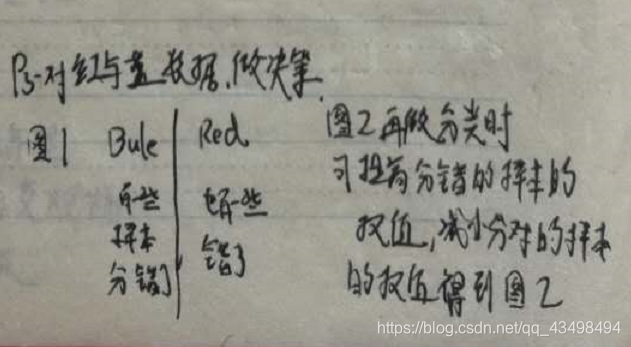 P3-对红与蓝数据,做决策.
图1 Bule Red
有些 有一些
样本 错了
分错了
图2再做分类时
可提高分错的样本的
权值,减少分对的样本
的权值得到图2
https://blog.csdn.net/qq_43498494